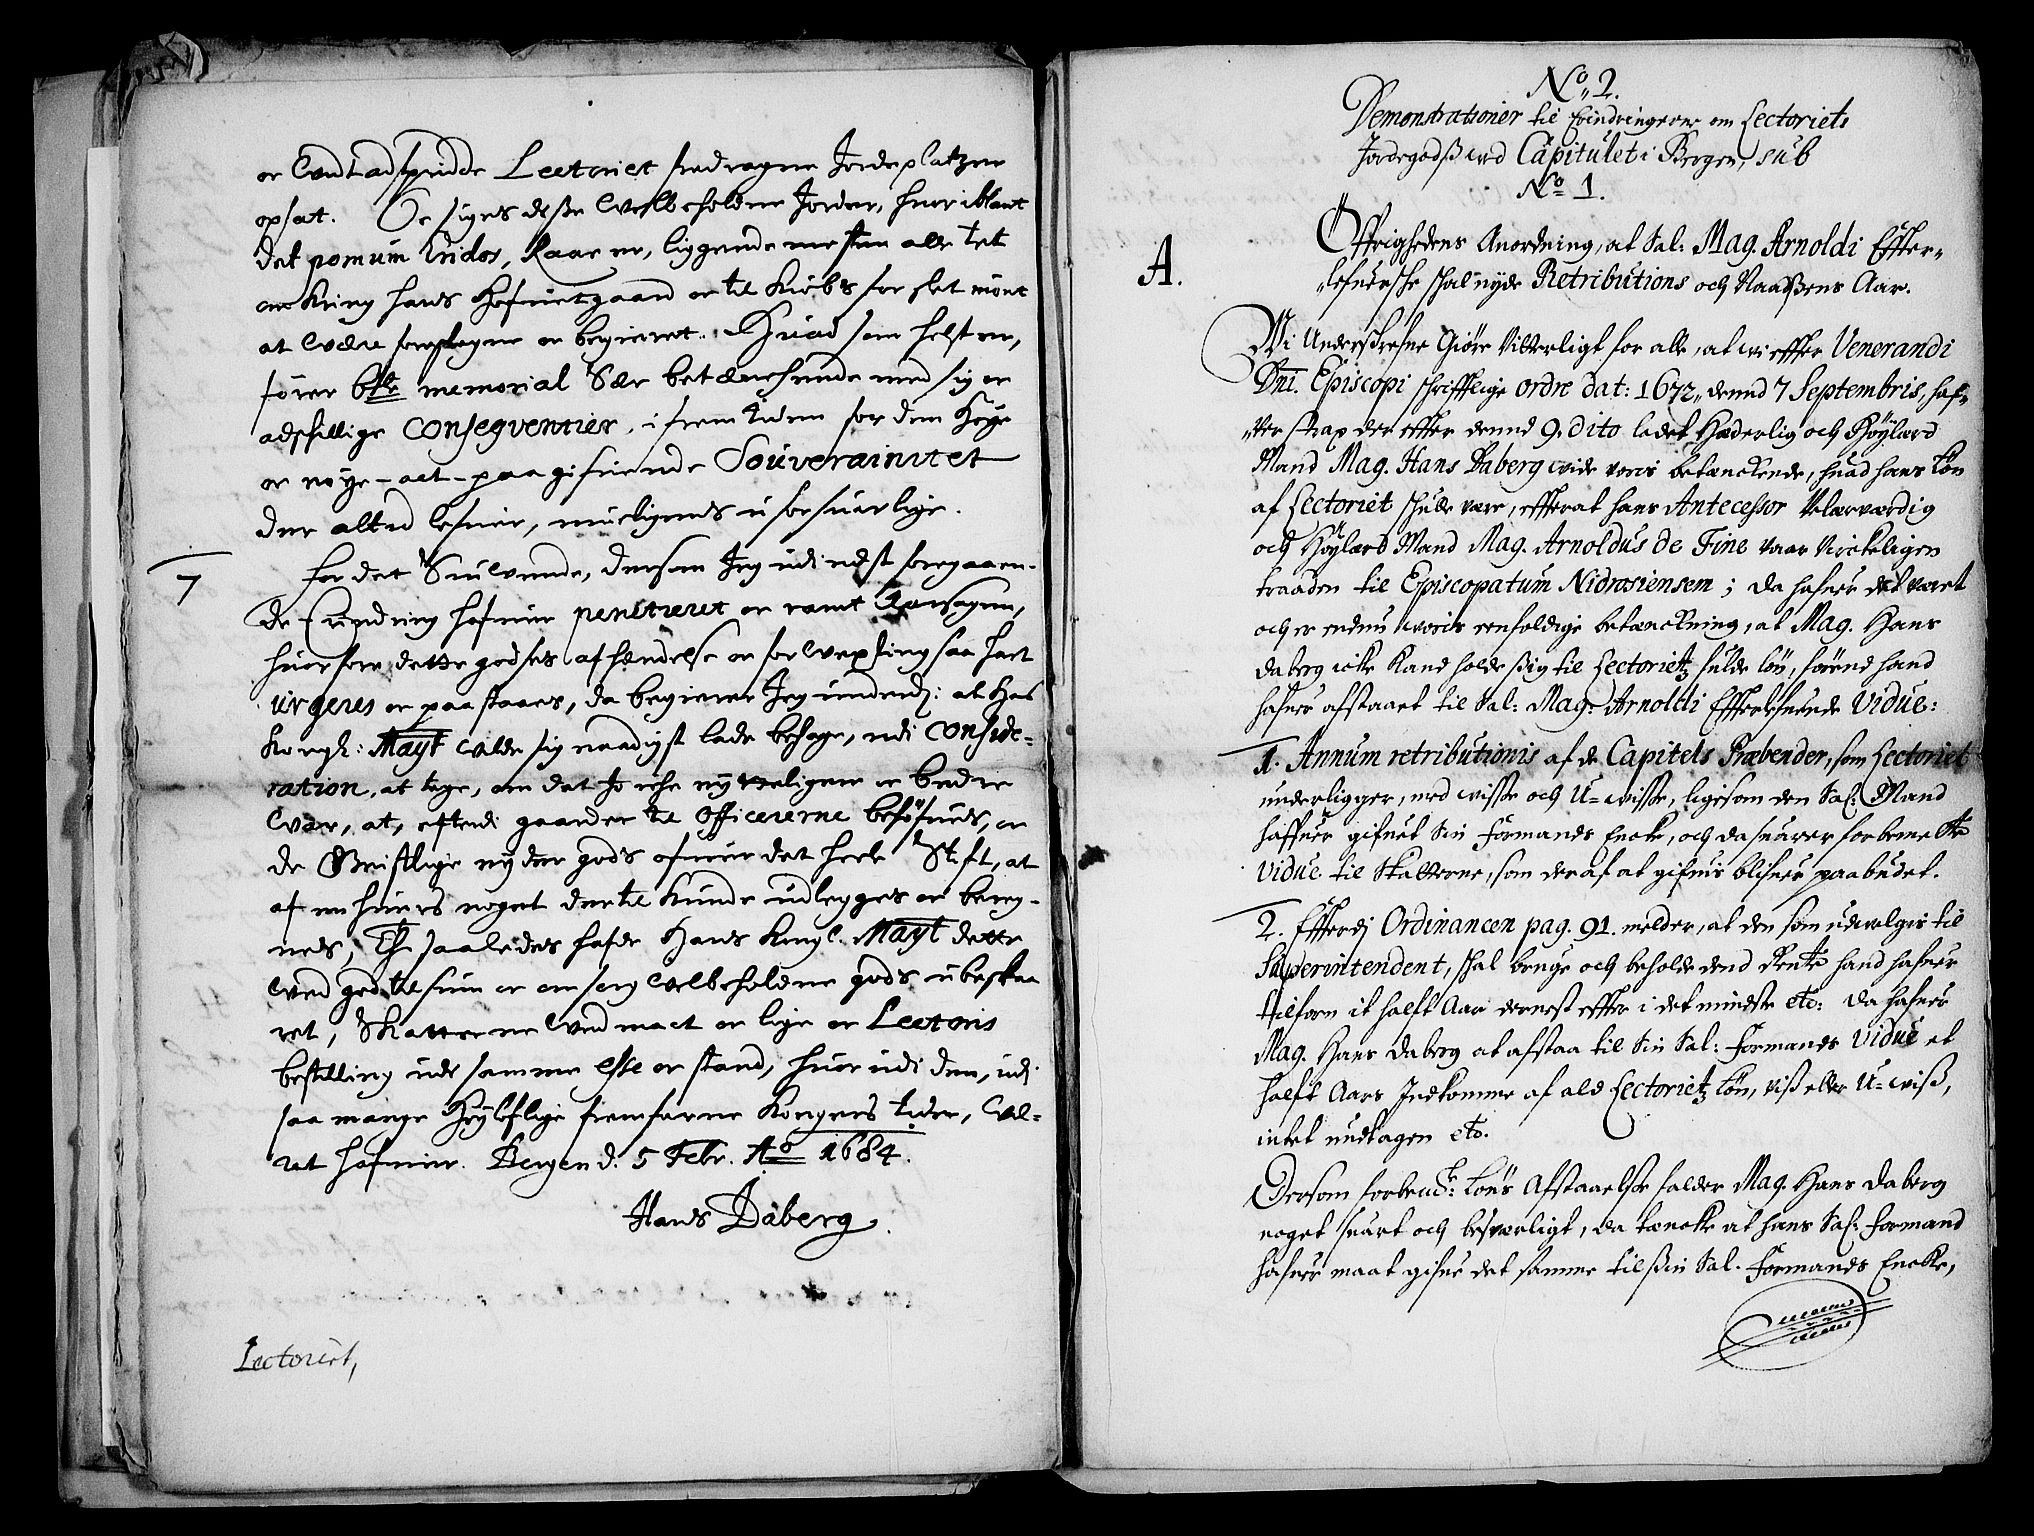 er Vndtadspridde Lectoriet fradragne Jordeplatzer
opsat. Oc siges desse velbeholdne Jorder, huor iblant
det pomum Eridos, Kaarne, liggende mesten alle tet
om Kring hans Hofuitgaard oc til Kiøbs for slet mönt
at være foreslagne oc begieret. Huad som helst er,
fører bte memorial Saa betænchende med sig oc
adskillige Conseqventier, i fremtiden for den Høye
oc nøye-act-paagifuende Souverainitet
der altid lefuer, mueligens uforsuarlige.
7
For det Siuvende, dersom Jeg udi næst foregaaen-
de Erindring hafuer penetreret oc ramt Aarsagen,
huorfore dette godses afhændelse oc forvexling saa hart
urgeres oc paastaaes, da begierer Jeg underd: at Hans
Kongl: Mayt vilde sig naadigst lade behage, udi Conside-
ration, at tage, om det Jo iche nytteligere oc bedre
var, at, efterdi gaarder til Officererne behøfues, oc
de Geistlige nyder gods ofuer det heele Stift, at
af en huers noget dertil Kunde udlegges oc bereg-
nes, Th saaledes hafde Hans Kongl. Mayt dette
ved god tilsiun oc omsorg velbeholdne gods ubeskaa
ret, Skatterne ved mact oc lige oc Lectoris
bestilling udi samme esse oc stand, huor udi den, udi
saa mange Høyloflige fremfarne Kongers tider, væ-
ret hafuer. Bergen d. 5 Febr. Ao 1684.
Hans Daberg.
Lectoriet,
No 2.
Demonstrationer til Erindringerne om Lectoriets
Jordegodß ved Capitulet i Bergen, sub
No 1.
A.
Öffrighedens Anordning, at Sal: Mag. Arnoldi Effter-
lefuersche schal nyde Retributions och Naadßens Aar.
Wi Underskrefne Giöre Vitterligt for alle, at wi effter Venerandi
Dni. Episcopi schrifftlige ordre dat: 1672, dennd 7 Septembris, haf-
ver strax der effter dennd 9. dito ladet Hæderlig och Höylærd
Mand Mag. Hans Daberg wide voris betænckende, huad hans Lön
af Lectoriet schulle være, effterat hans Antecessor Velærværdig
och Höylærd Mand Mag. Arnoldus de Fine vaar Virckeligen
traaden til Episcopatum Nidrosiensem; da hafuer det været
och er endnu woris eenfoldige betænckning, at Mag. Hans
Daberg icke Kand holde ßig til Lectorietz fulde Lön, förend hand
hafuer afstaaet til Sal: Mag: Arnoldi Effterlefuende Vidue:
1. Annum retributionis af de Capitels Præbender, som Lectoriet
underligger, med wisse och U-wisse, ligesom den Sal: Mand
haffuer gifuet Sin Formands Encke, och da suarer forbemelte
Vidue til Skatterne, som deraf at gifuis blifuer paabudet.
2. Effterdj Ordinancen pag. 91. melder, at den som udvelgis til
Superintendent, skal bruge och beholde dend Rente hand hafuer
tilforn it halft Aar dernest effter i det mindste etc: Da hafuer
Mag. Hans Daberg at afstaa til Sin Sal: Formands Vidue et
halft Aars Indkomme af ald Lectorietz Lön, viß eller U-wiß,
intet undtagen etc.
Dersom forbemte: Löns Afstaaelse falder Mag. Hans Daberg
noget suart och besværligt, da tencke at hans Sal: Formand
hafuer maat gifue det samme til ßin Sal. Formands Encke,